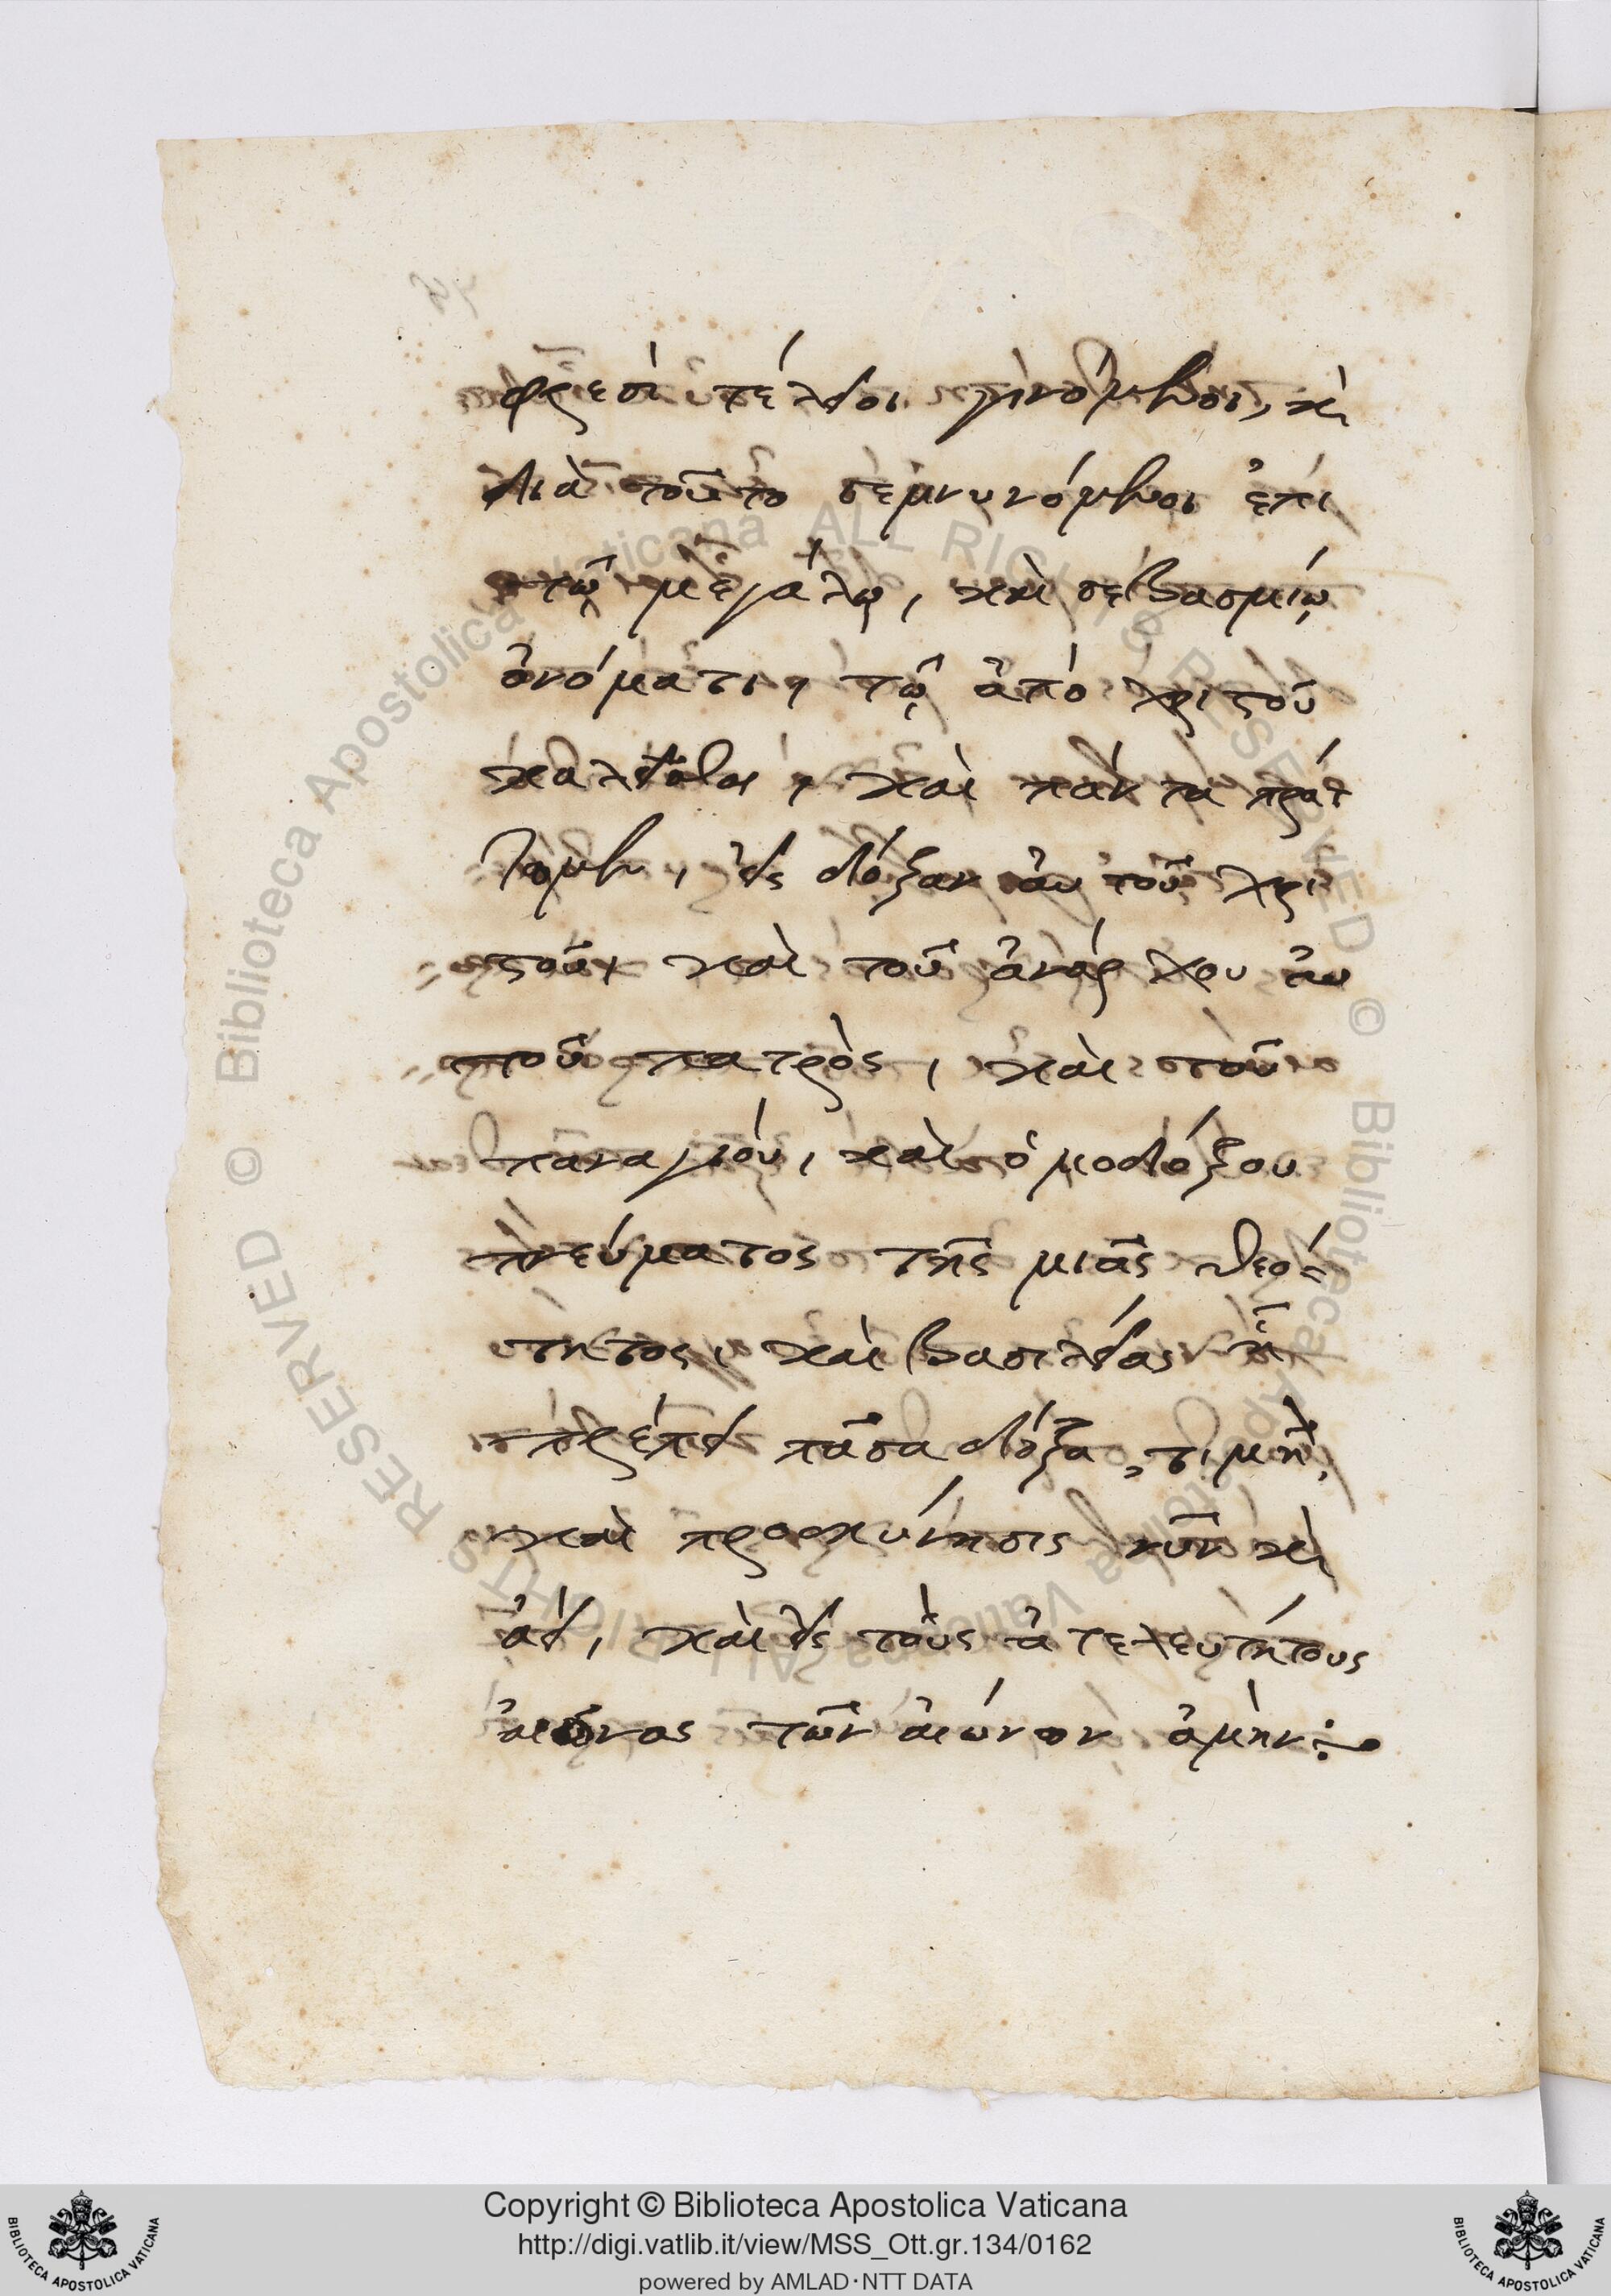 φρεσὶ τέλειοι γινόμενοι, κὶ
διὰ τοῦτο σεμνυνόμενοι ἐπὶ
τῷ μεγάλῳ, καὶ σεβασμίῳ
ὀνόματι, τῷ ἀπὸ χριστοῦ
καλεῖσθαι, καὶ πάντα πράτ
τομεν, εἰς δόξαν αὐτοῦ χρι
στοῦ, καὶ τοῦ ἀνάρχου αὐ
τοῦ πατρὸς, καὶ τοῦ
παναγίου, καὶ ὁμοδόξου
πνεύματος τῆς μιᾶς θεό-
τητος, καὶ βασιλείας ᾗ
πρέπει πᾶσα δόξα, τιμὴ,
καὶ προσκύνησις νῦν κὶ
ἀεὶ, καὶ εἰς τοὺς ἀτελευτήτους
αἰῶνας τῶν αἰώνων ἀμὴν:
Copyright © Biblioteca Apostolica Vaticana
http://digi.vatlib.it/view/MSS_Ott.gr.134/0162
powered by AMLAD·NTT DATA
BIBLIOTECA APOSTOLICA VATICANA
BIBLIOTECA APOSTOLICA VATICANA
© Biblioteca Apostolica Vaticana ALL RIGHTS RESERVED © Biblioteca Apostolica Vaticana ALL RIGHTS RESERVED